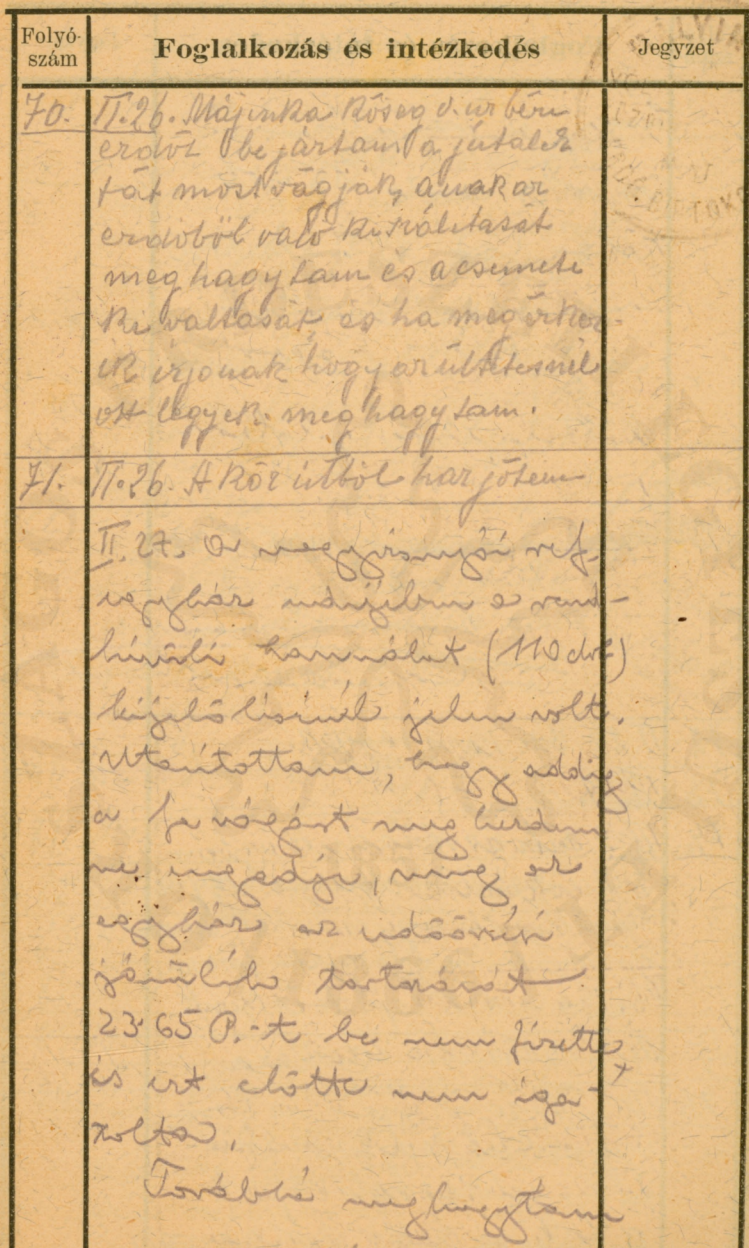 Folyó-
szám
Foglalkozás és intézkedés
Jegyzet
70. II.26. Májinka Község v. urbéri
erdőt be jártam a jutalék
fát most vágják, anak az
erdőből való
meghagytam és a csemete
ki valtását, és ha megérkez-
ik irjonak hogy az ültetesnél
ott legyek. meg hagytam.
71. II.26. A Kör útból haz jötem
II.27. A ref.
egyház a rend-
kívüli használat (110 drb)
kijelölésénél jelen volt.
Utasítottam, hogy addig
a fa vágást meg kezdeni
ne engedje, míg az
egyház az erdőőrzési
járulék tartozását
23.65 P.-t be nem fizette,
és ezt előtte nem iga-
zolta.
Továbbá meghagytam